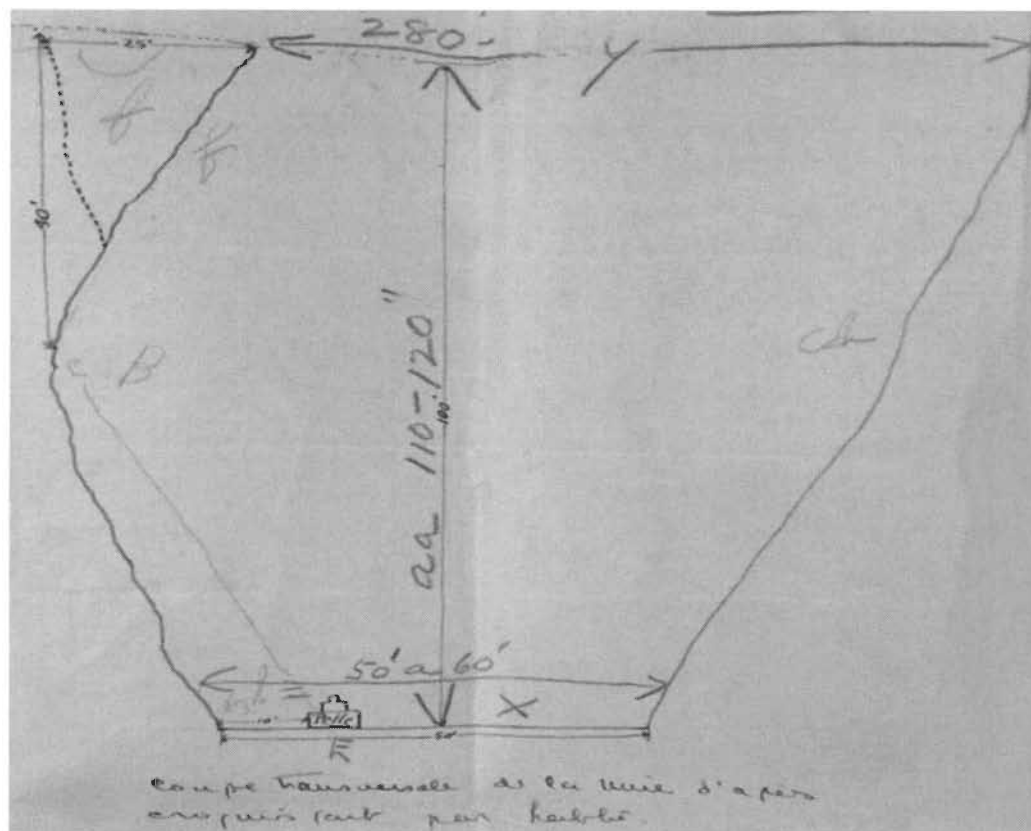 25'
280'
Y
f
f
30'
aa 110-120"
100'
e B
ch
50' a 60'
X
10'
II
50'
coupe transversale de la mine d'après
croquis fait par